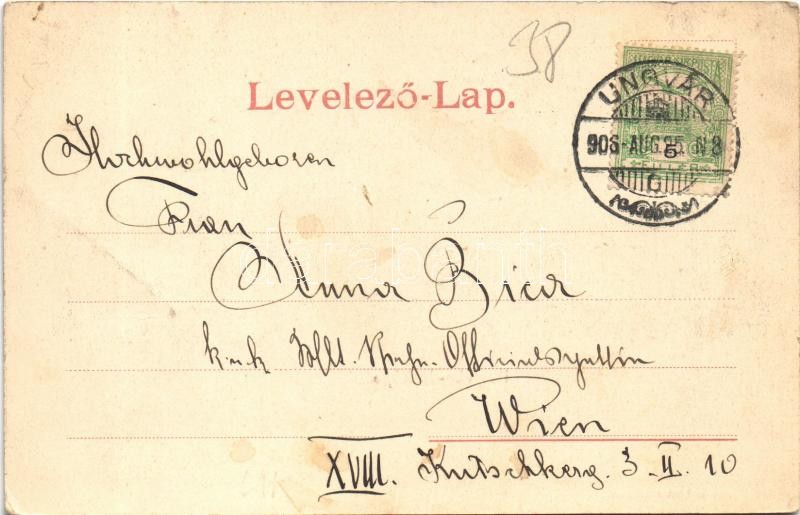 38
Levelező-Lap.
UNGVÁR
906-AUG.25. N8
G
FILLÉR
Hochwohlgeboren
Frau
Anna Bier
k.u.k Offizialsgattin
Wien
XVIII. Kutschkerg. 3. II. 10